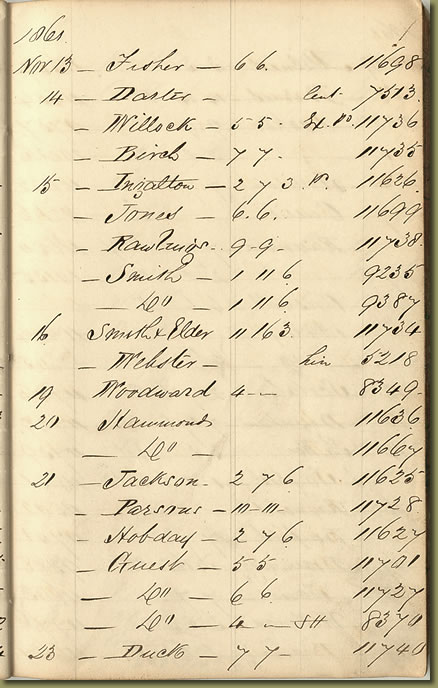 1861
Nov 13 — Fisher — 6 6. 11698
14 — Darter — 7513
— Willock — 5 5. 11736
— Birch — 7 7. 11735
15 — Ingalton — 2 7 3 11626
— Jones — 6. 6. 11699
— Rawlings - 9 - 9 - 11738
— Smith — 1 11 6 9235
— Do — 1 11 6. 9387
16 Smith & Elder 11 16 3. 11734
— Webster — 5218
19 Woodward 4 — — 8349
20 Hammond 11636
— Do — 11667
21 — Jackson - 2 7 6 11625
— Parsons — 11728
— Hobday — 2 7 6. 11627
— Guest — 5 5 11701
— Do — 6 6. 11727
— Do — 4 — 8370
23 — Duck — 7 7 - 11740